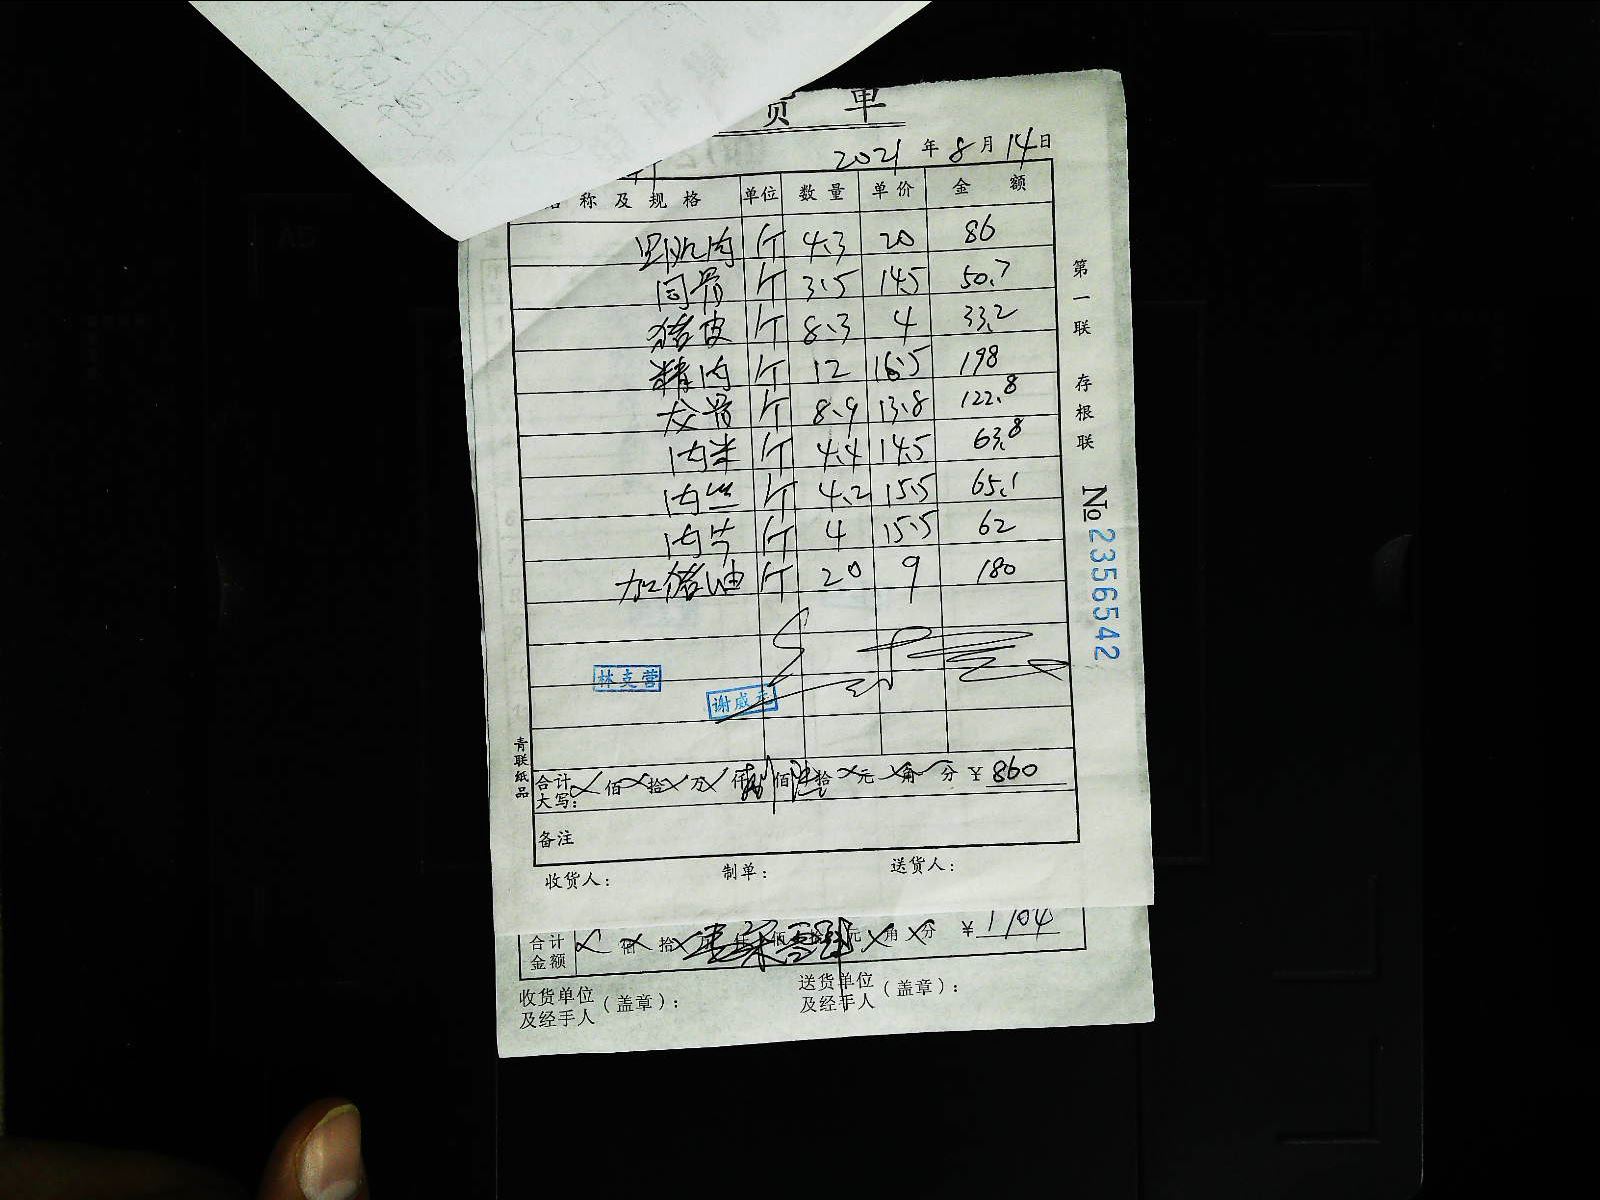 货 单
2021 年 8 月 14 日
名 称 及 规 格 单位 数 量 单 价 金 额
肌肉 斤 4.3 20 86
同骨 斤 3.5 14.5 50.7
猪皮 斤 8.3 4 33.2
精肉 斤 12 16.5 198
龙骨 斤 8.9 13.8 122.8
肉米 斤 4.4 14.5 63.8
肉丝 斤 4.2 15.5 65.1
肉片 斤 4 15.5 62
加猪油 斤 20 9 180
林克营
谢威元
合计
大写： 佰 拾 万 仟捌佰陆拾 元 角 分 ¥ 860
备注
收货人： 制单： 送货人：
第一联 存根联 № 2356542
青联纸品
合计
金额 佰 拾 万 仟 佰 拾 元 角 分 ¥ 1704
收货单位
及经手人（盖章）：
送货单位
及经手人（盖章）：